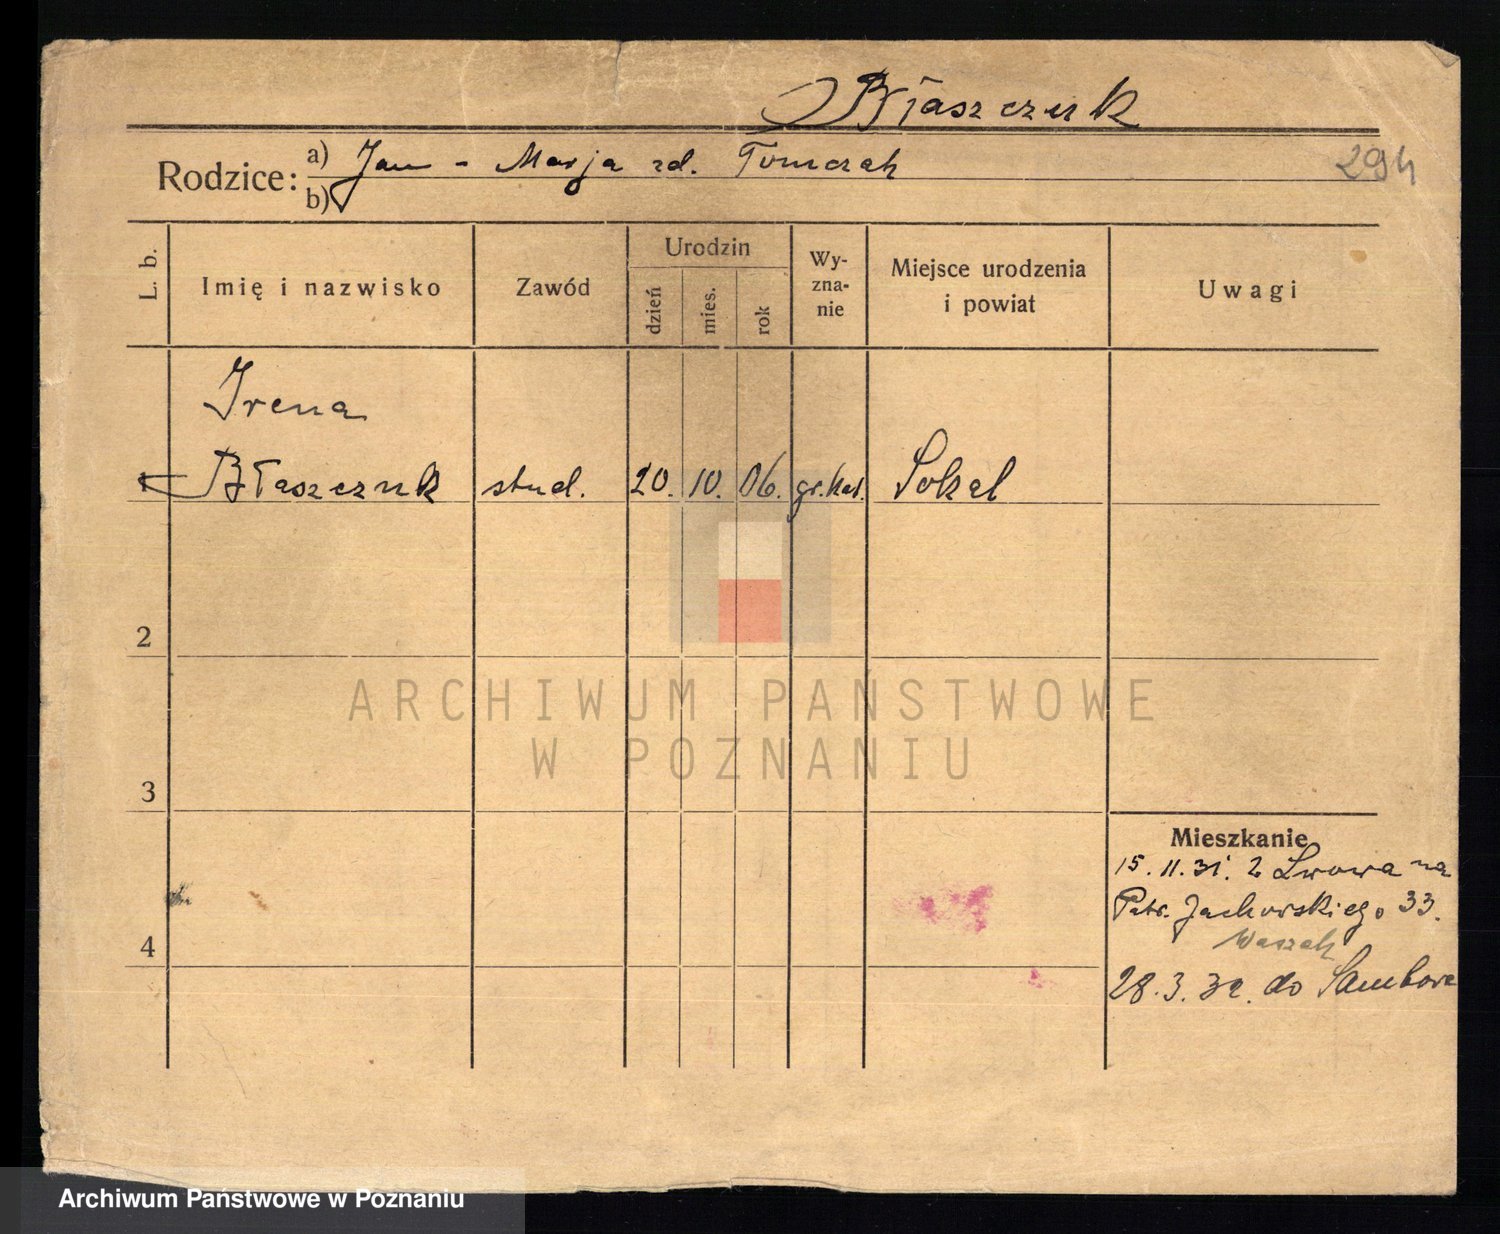 Błaszczuk
Rodzice: a) Jan - Marja zd. Tomczak
b)
294
L. b.
Imię i nazwisko
Zawód
Urodzin
dzień
mies.
rok
Wy-
zna-
nie
Miejsce urodzenia
i powiat
Uwagi
Irena
1 Błaszczuk stud. 20. 10. 06. gr.kat. Sokal
2
ARCHIWUM PAŃSTWOWE
W POZNANIU
3
Mieszkanie
15.11.31. z Lwowa na
Patr. Jackowskiego 33.
4
28.3.32. do Sambora
Archiwum Państwowe w Poznaniu